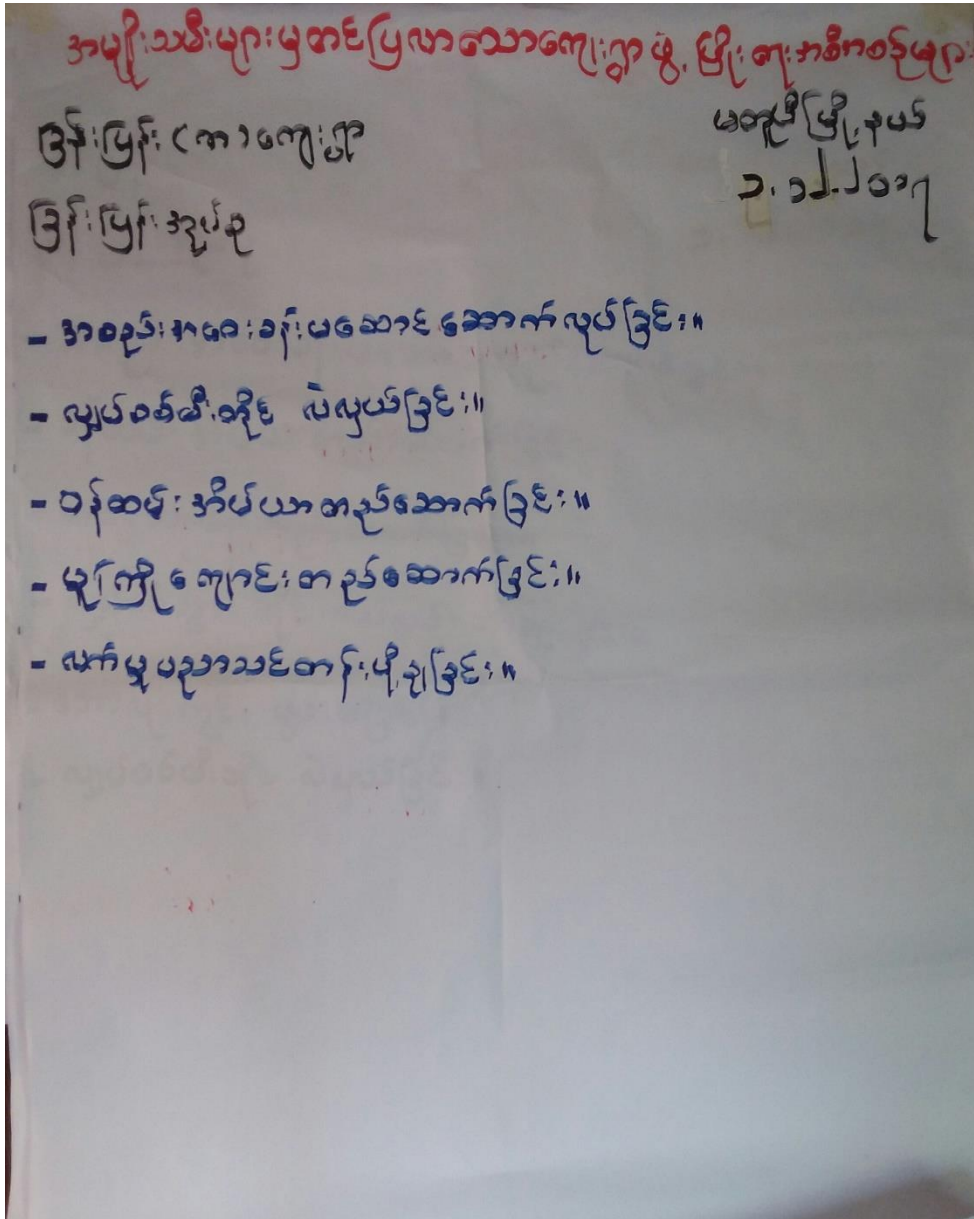 အမျိုးသမီးများမှတင်ပြလာသောကျေးရွာဖွံ့ဖြိုးရေးအစီအစဉ်များ
ခြန်းမြန်း (က) ကျေးရွာ
မတူပီမြို့နယ်
၁.၁၂.၂၀၁၇
ခြန်းမြန်းအုပ်စု
- အစည်းအဝေးခန်းမဆောင် ဆောက်လုပ်ခြင်း။
- လျှပ်စစ်မီးတိုင် လဲလှယ်ခြင်း။
- ဝန်ထမ်းအိမ်ယာတည်ဆောက်ခြင်း။
- မူကြိုကျောင်းတည်ဆောက်ခြင်း။
- လက်မှုပညာသင်တန်းပို့ချခြင်း။